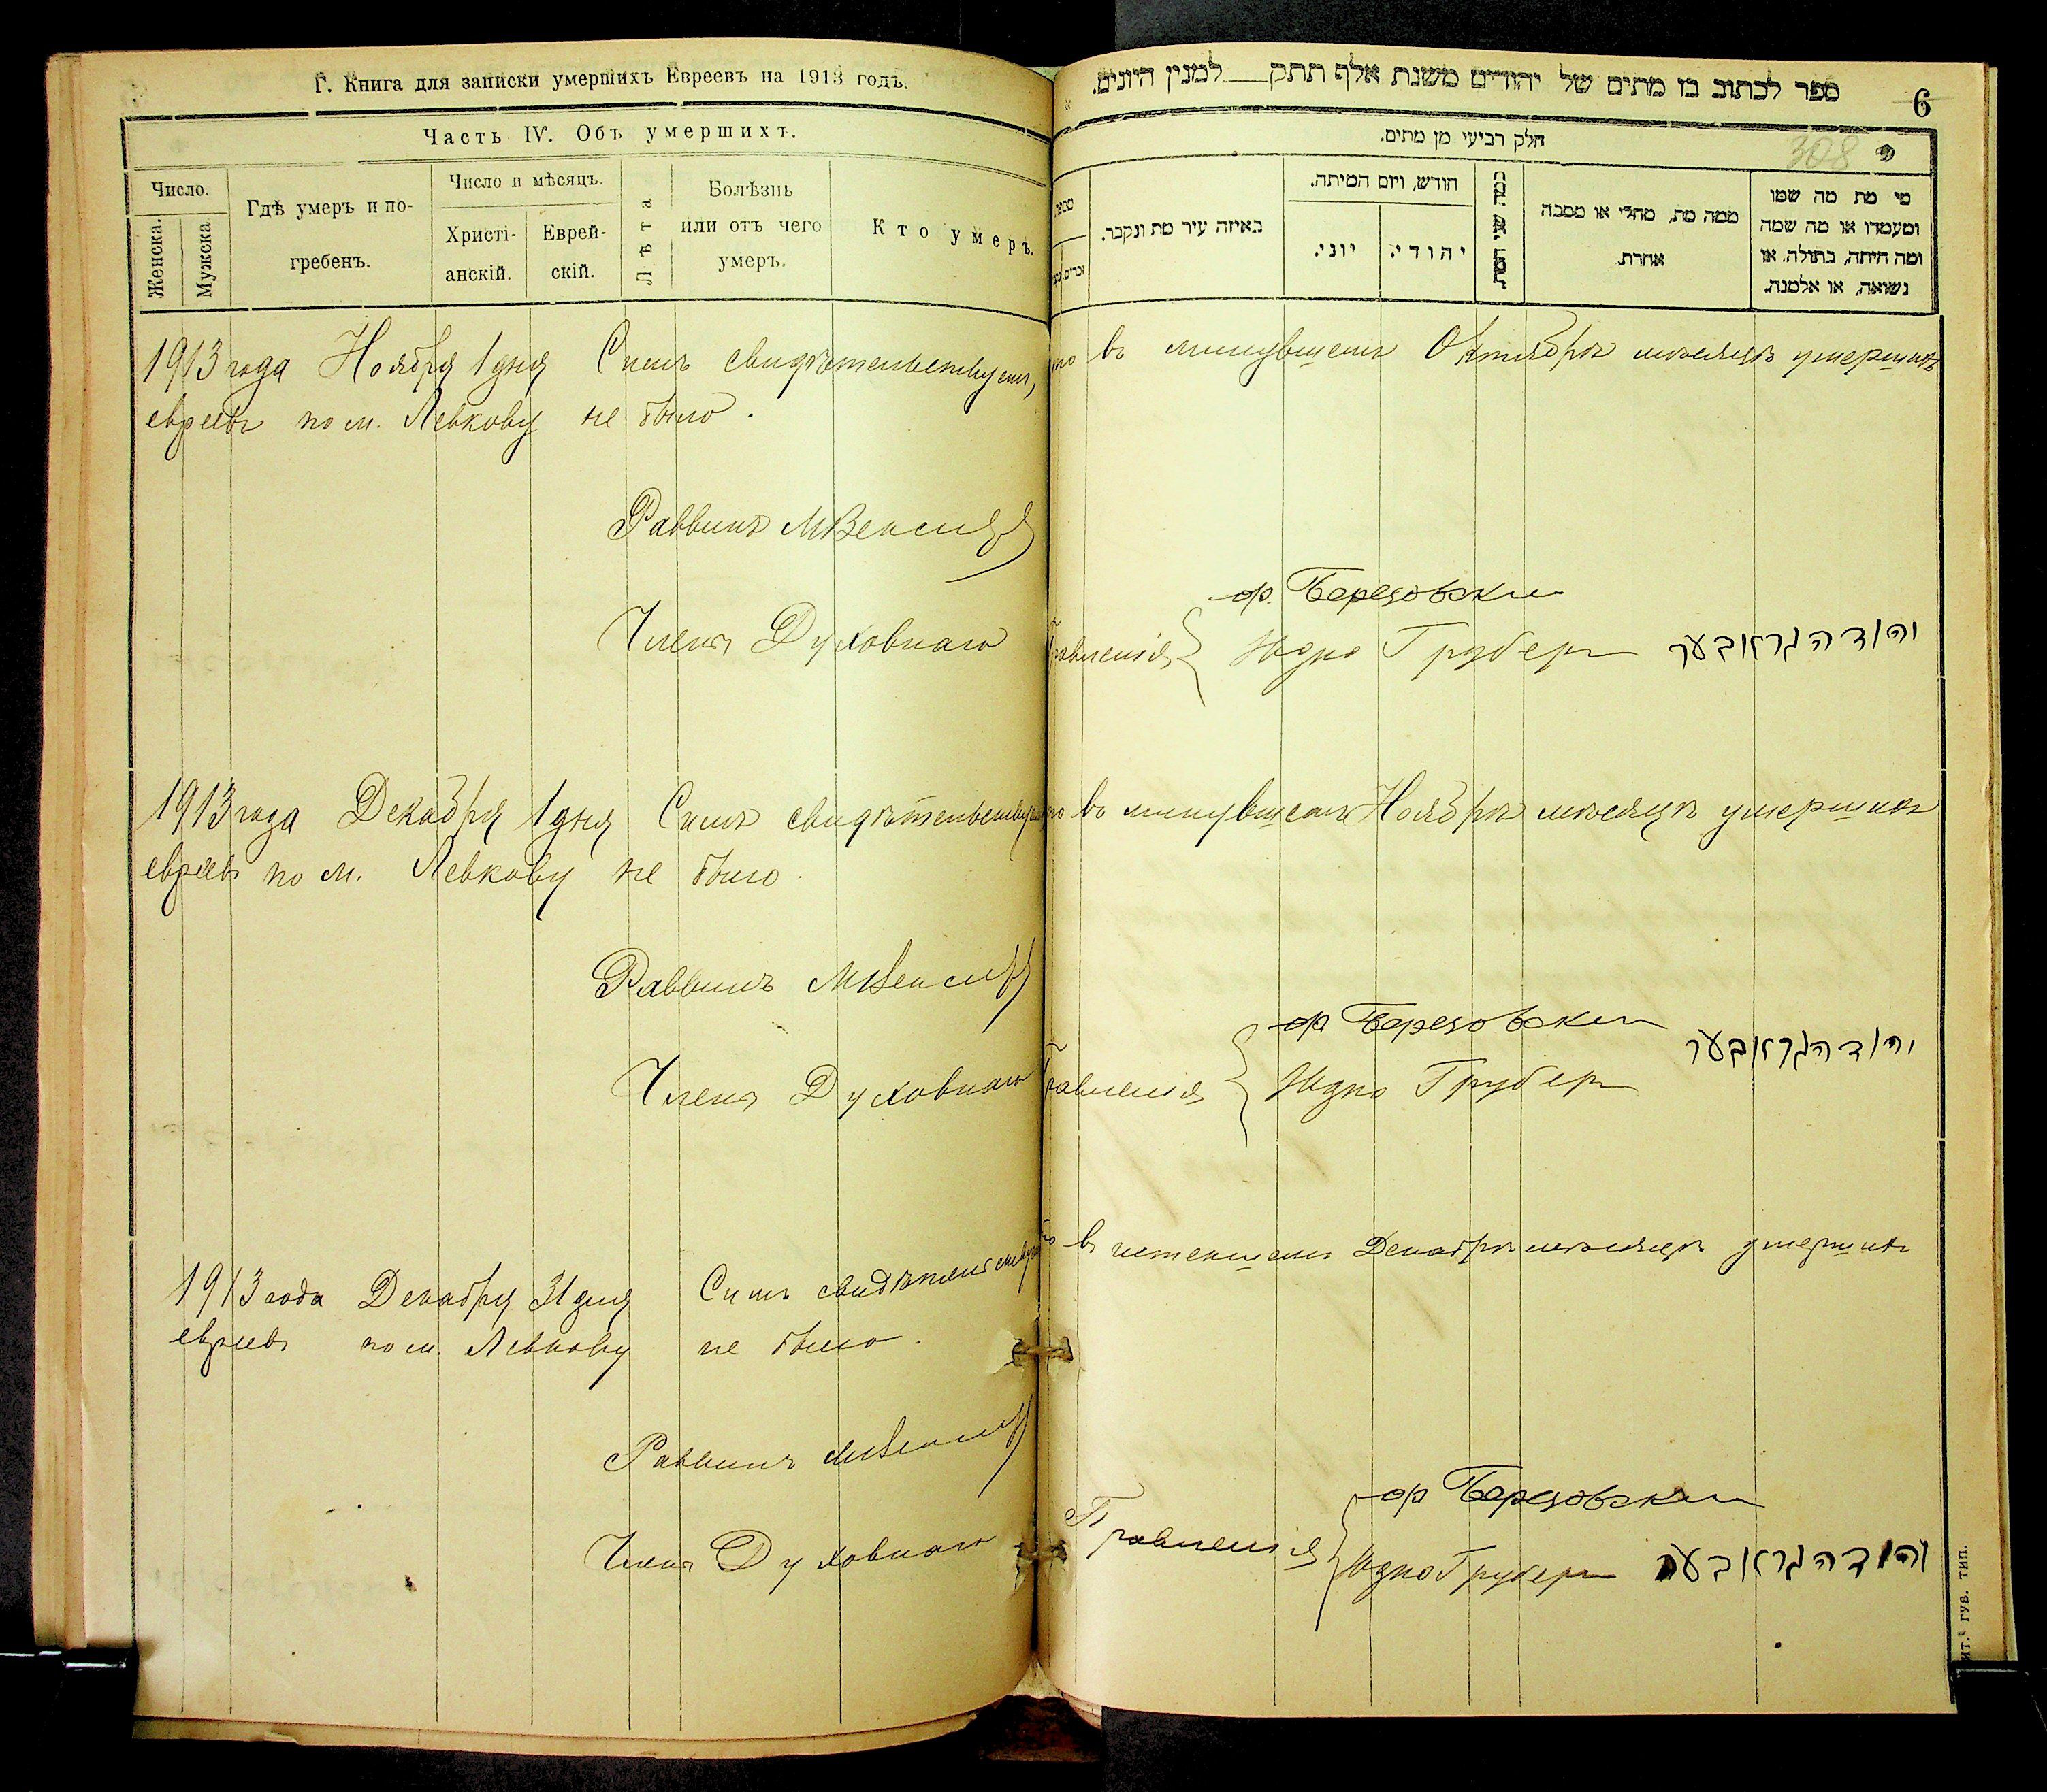 Г. Книга для записки умершихъ Евреевъ на 1913 годъ.
Часть IV. Объ умершихъ.
Число.
Женска.
Мужска
Гдѣ умеръ и по-
гребенъ.
Число и мѣсяцъ.
Христі-
анскій.
Еврей-
скій.
Лѣта
Болѣзнь
или отъ чего
умеръ.
Кто умеръ.
ספר לכתוב בו מתים של יהודים משנת אלף תתק למנין היונים.
6
308
חלק רביעי מן מתים.
באיזה עיר מת ונקבר.
חודש, ויום המיתה.
יוני.
יהודי.
כמה שני המת.
ממה מת, מחלי או מסבה
אחרת.
מי מת מה שמו
ומעמדו או מה שמה
ומה היתה, בתולה, או
נשואה, או אלמנה.
1913 года Ноября 1 дня Симъ свидѣтельствуетъ, что въ минувшемъ Октябрѣ мѣсяцѣ умершихъ
евреевъ по м. Левкову не было.
Раввинъ
ор. Березовски
Члены Духовнаго Правленія Юдко Груберъ יהודה גראבער
1913 года Декабря 1 дня Симъ свидѣтельствуетъ что въ минувшемъ Ноябрѣ мѣсяцѣ умершихъ
евреевъ по м. Левкову не было.
Раввинъ
ор Березовски
יהודה גראבער
Члены Духовнаго Правленія Юдко Груберъ
1913 года Декабря 31 дня Симъ свидѣтельствуетъ что въ истекшемъ Декабрѣ мѣсяцѣ умершихъ
евреевъ по м. Левкову не было.
Раввинъ
ор Березовски
Члены Духовнаго Правленія Юдко Груберъ יהודה גראבער
ГУБ. ТИП.